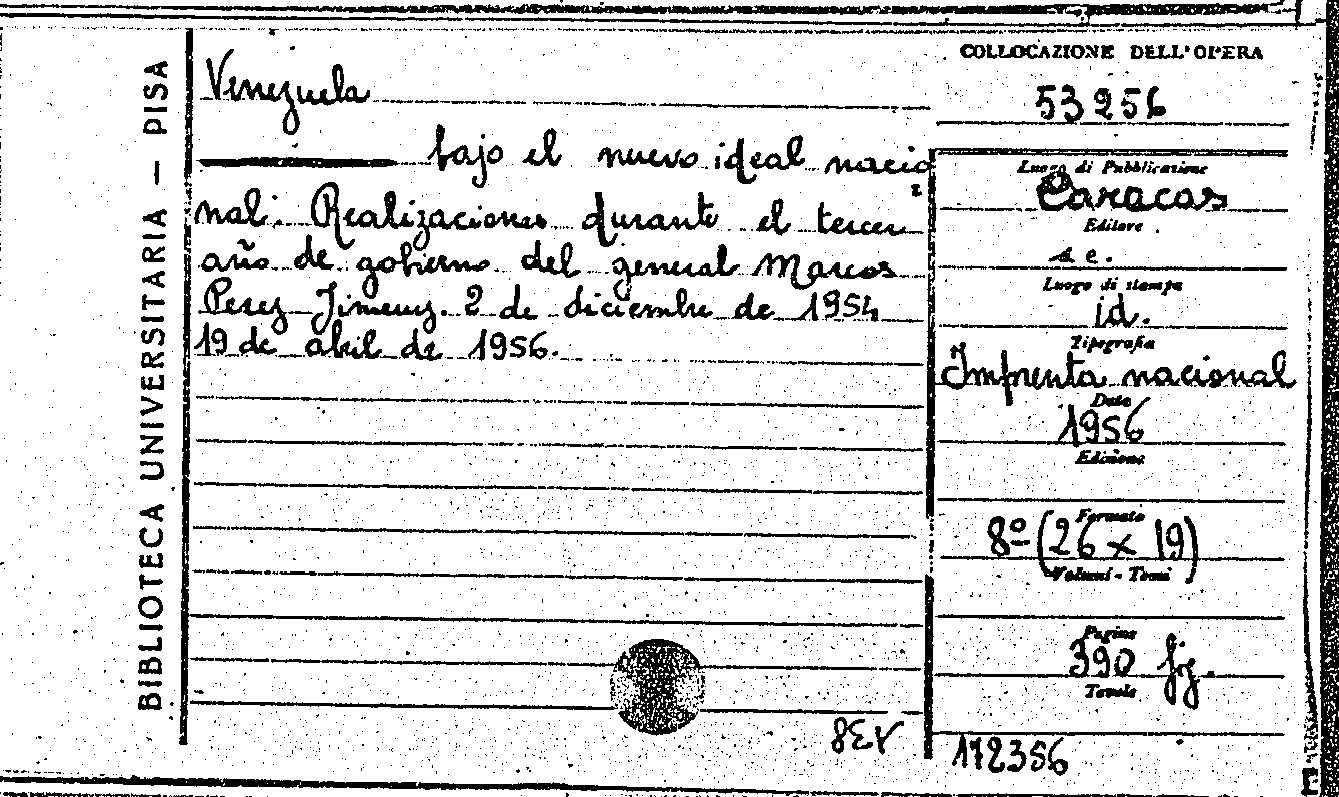 BIBLIOTECA UNIVERSITARIA — PISA
Venezuela
——— bajo el nuevo ideal nacio
nal. Realizaciones durante el tercer
año de gobierno del general Marcos
Perez Jimenez. 2 de diciembre de 1954
19 de abril de 1956.
COLLOCAZIONE DELL'OPERA
53256
Luogo di Pubblicazione
Caracas
Editore
s. e.
Luogo di stampa
id.
Tipografia
Imprenta nacional
Data
1956
Edizione
Formato
8º (26 x 19)
Volumi - Tomi
Pagine
390 fig.
Tavole
172356